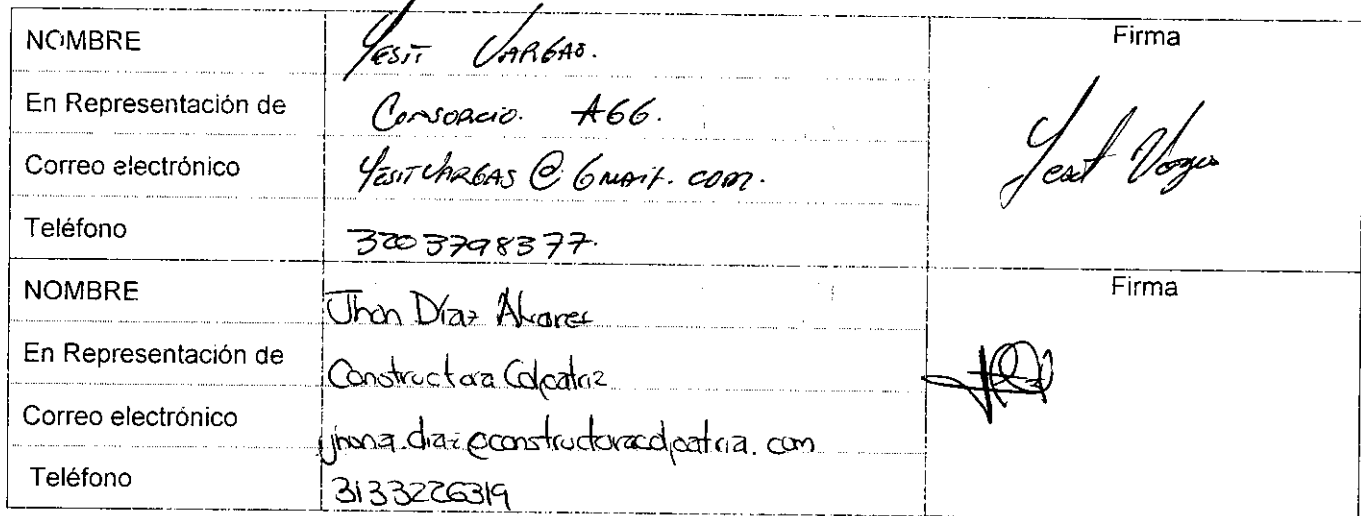 NOMBRE Yesit Vargas. Firma
En Representación de Consorcio. A66.
Correo electrónico YesitVargas@Gmail.com. Yesit Vargas
Teléfono 3203798377.
NOMBRE Jhon Díaz Alvarez Firma
En Representación de Constructora Colpatria
Correo electrónico jhona.diaz@constructoracolpatria.com
Teléfono 3133226319